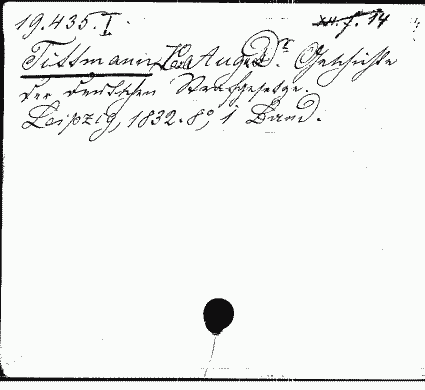 19.435.I.
f. 14
Tittmann, Aug. Dr. Geschichte
der deutschen Strafgesetze.
Leipzig, 1832. 8°, 1 Band.